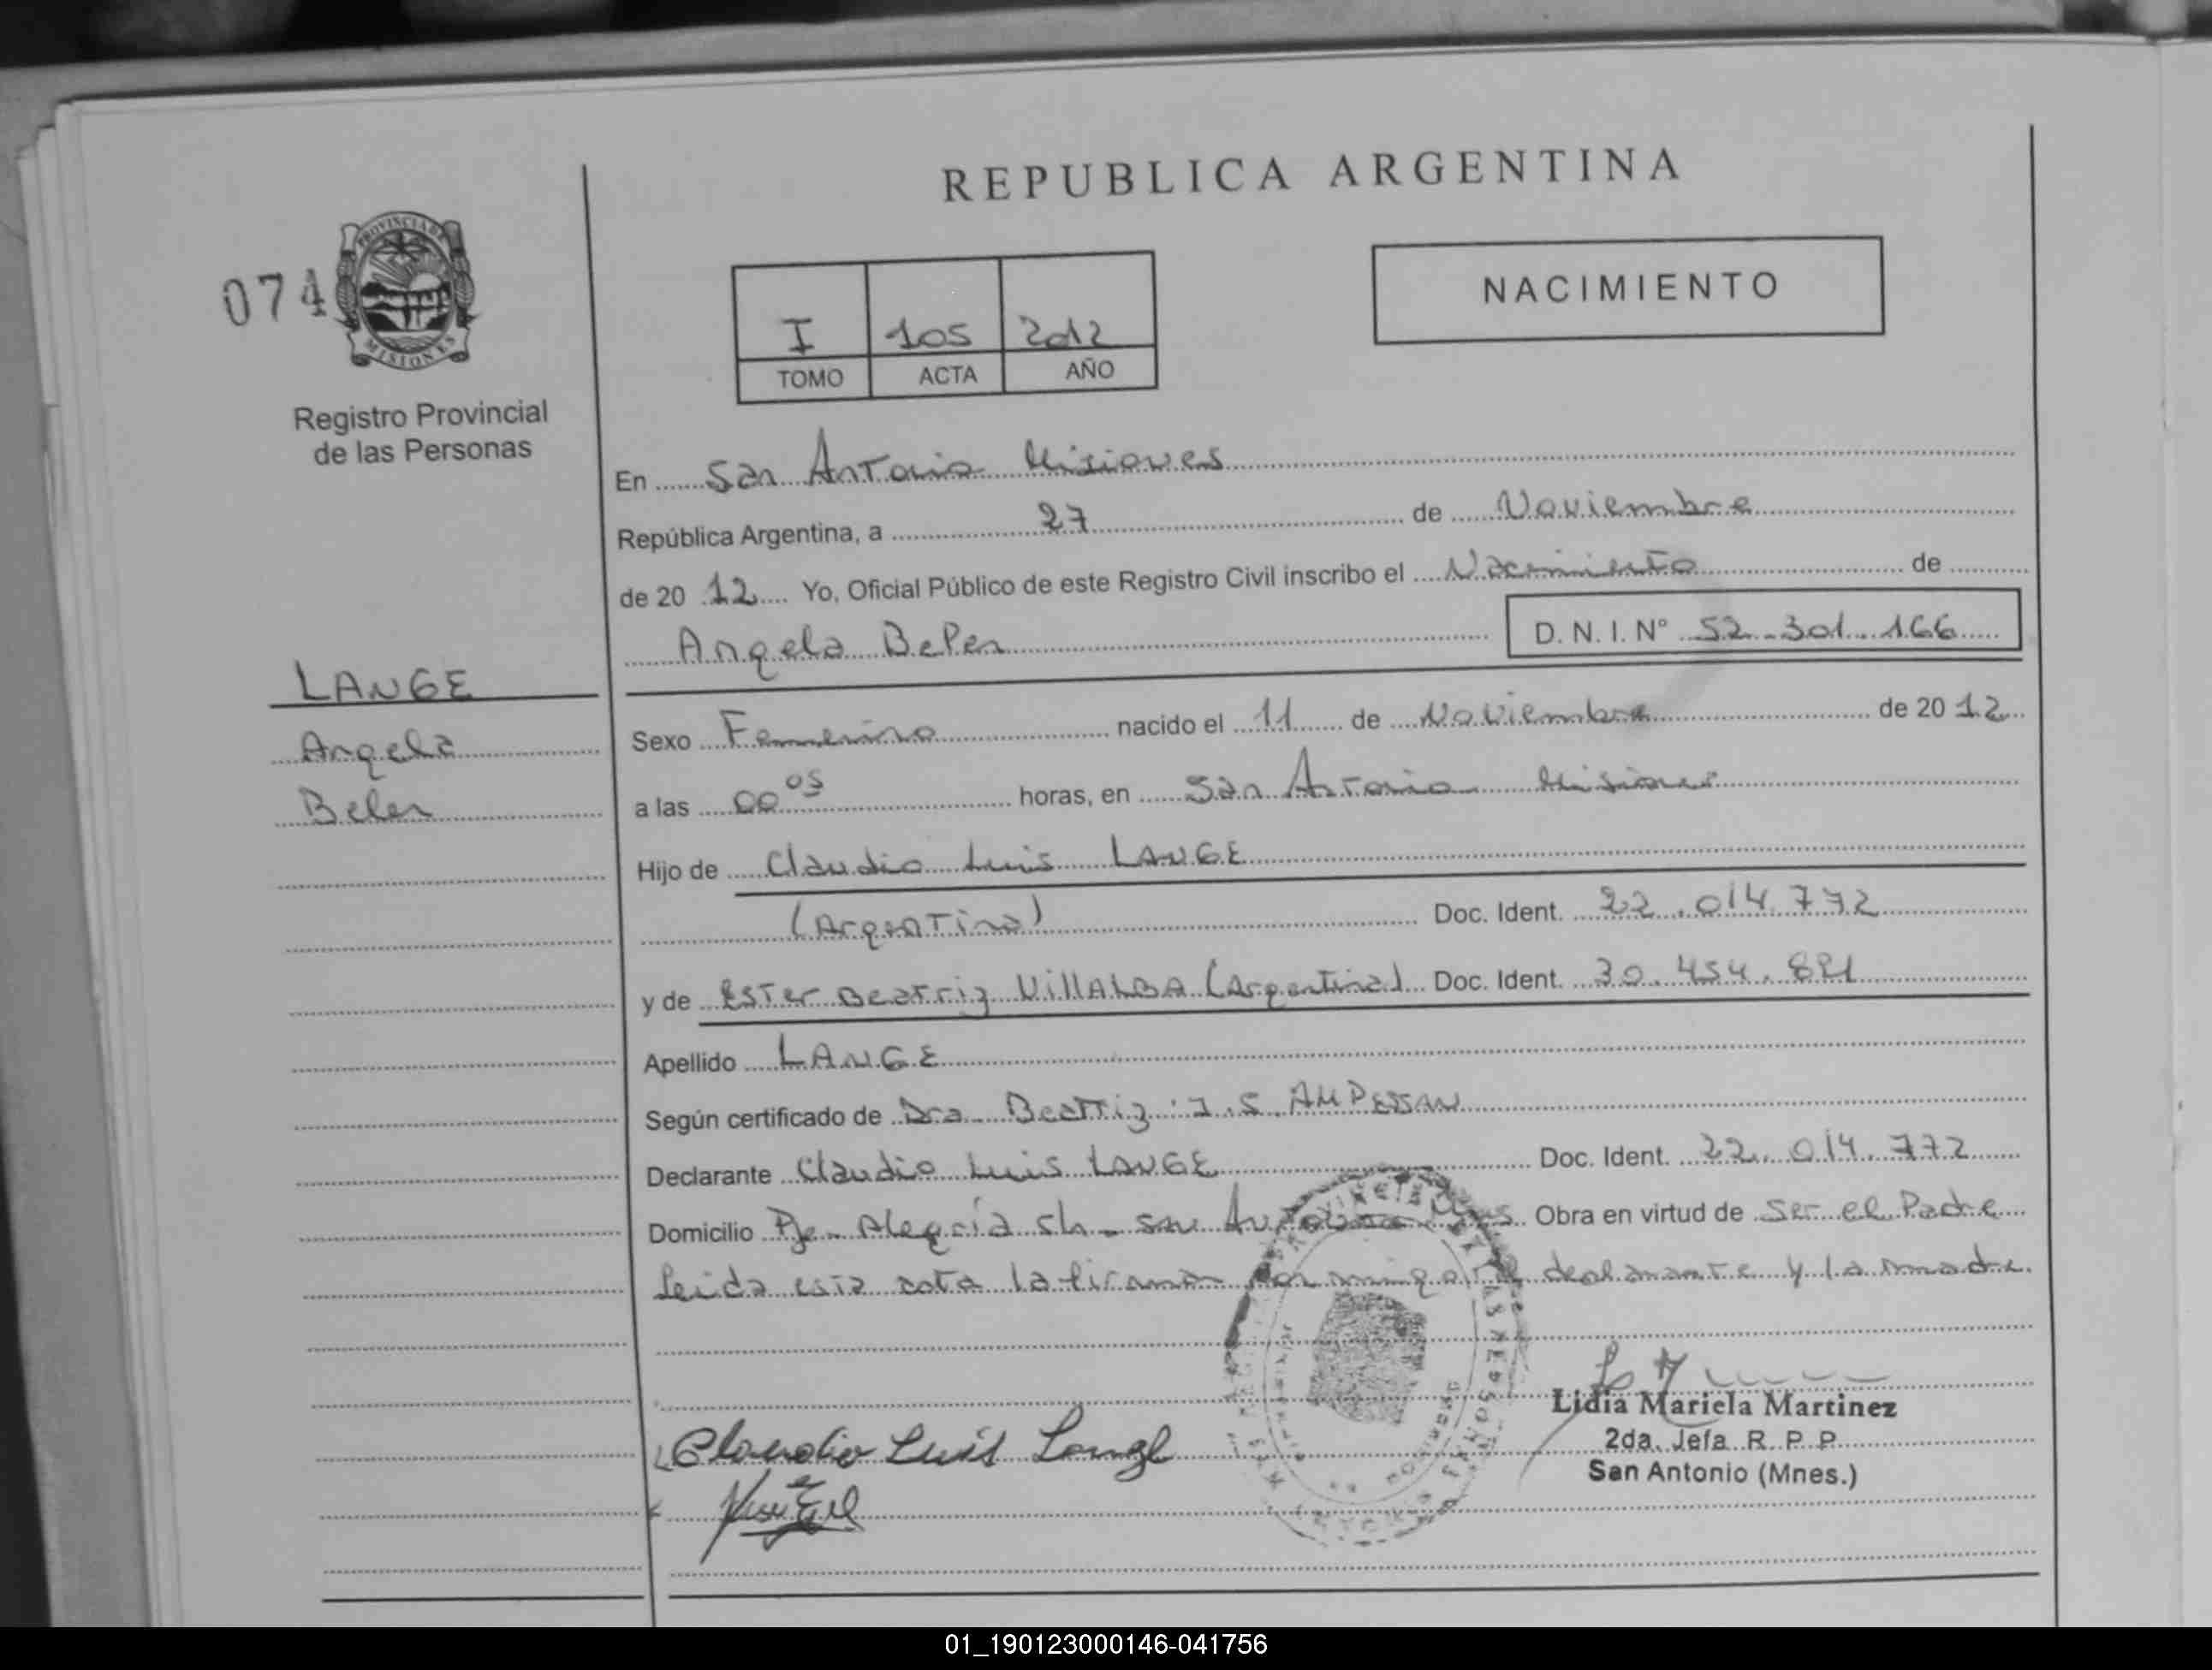 REPUBLICA ARGENTINA
074
PROVINCIA DE
MISIONES
Registro Provincial
de las Personas
NACIMIENTO
I 105 2012
TOMO ACTA AÑO
En San Antonio Misiones
República Argentina, a 27 de Noviembre
de 20 12 Yo, Oficial Público de este Registro Civil inscribo el Nacimiento de
Angela Belen D. N. I. N° 52.301.166
LANGE
Angela
Belen
Sexo Femenino nacido el 11 de Noviembre de 20 12
a las 00 05 horas, en San Antonio Misiones
Hijo de Claudio Luis LANGE
(Argentino) Doc. Ident. 22.014.772
y de Ester Beatriz VillALBA (Argentina) Doc. Ident. 30.454.821
Apellido LANGE
Según certificado de Dra. Beatriz J. S. AMPESSAN
Declarante Claudio Luis LANGE Doc. Ident. 22.014.772
Domicilio Pje. Alegría s/n - San Antonio Mnes. Obra en virtud de ser el Padre
Leida esta acta la firman por migo el declarante y la madre.
Claudio Luis Lange
Lidia Mariela Martinez
2da. Jefa R. P. P.
San Antonio (Mnes.)
01_190123000146-041756